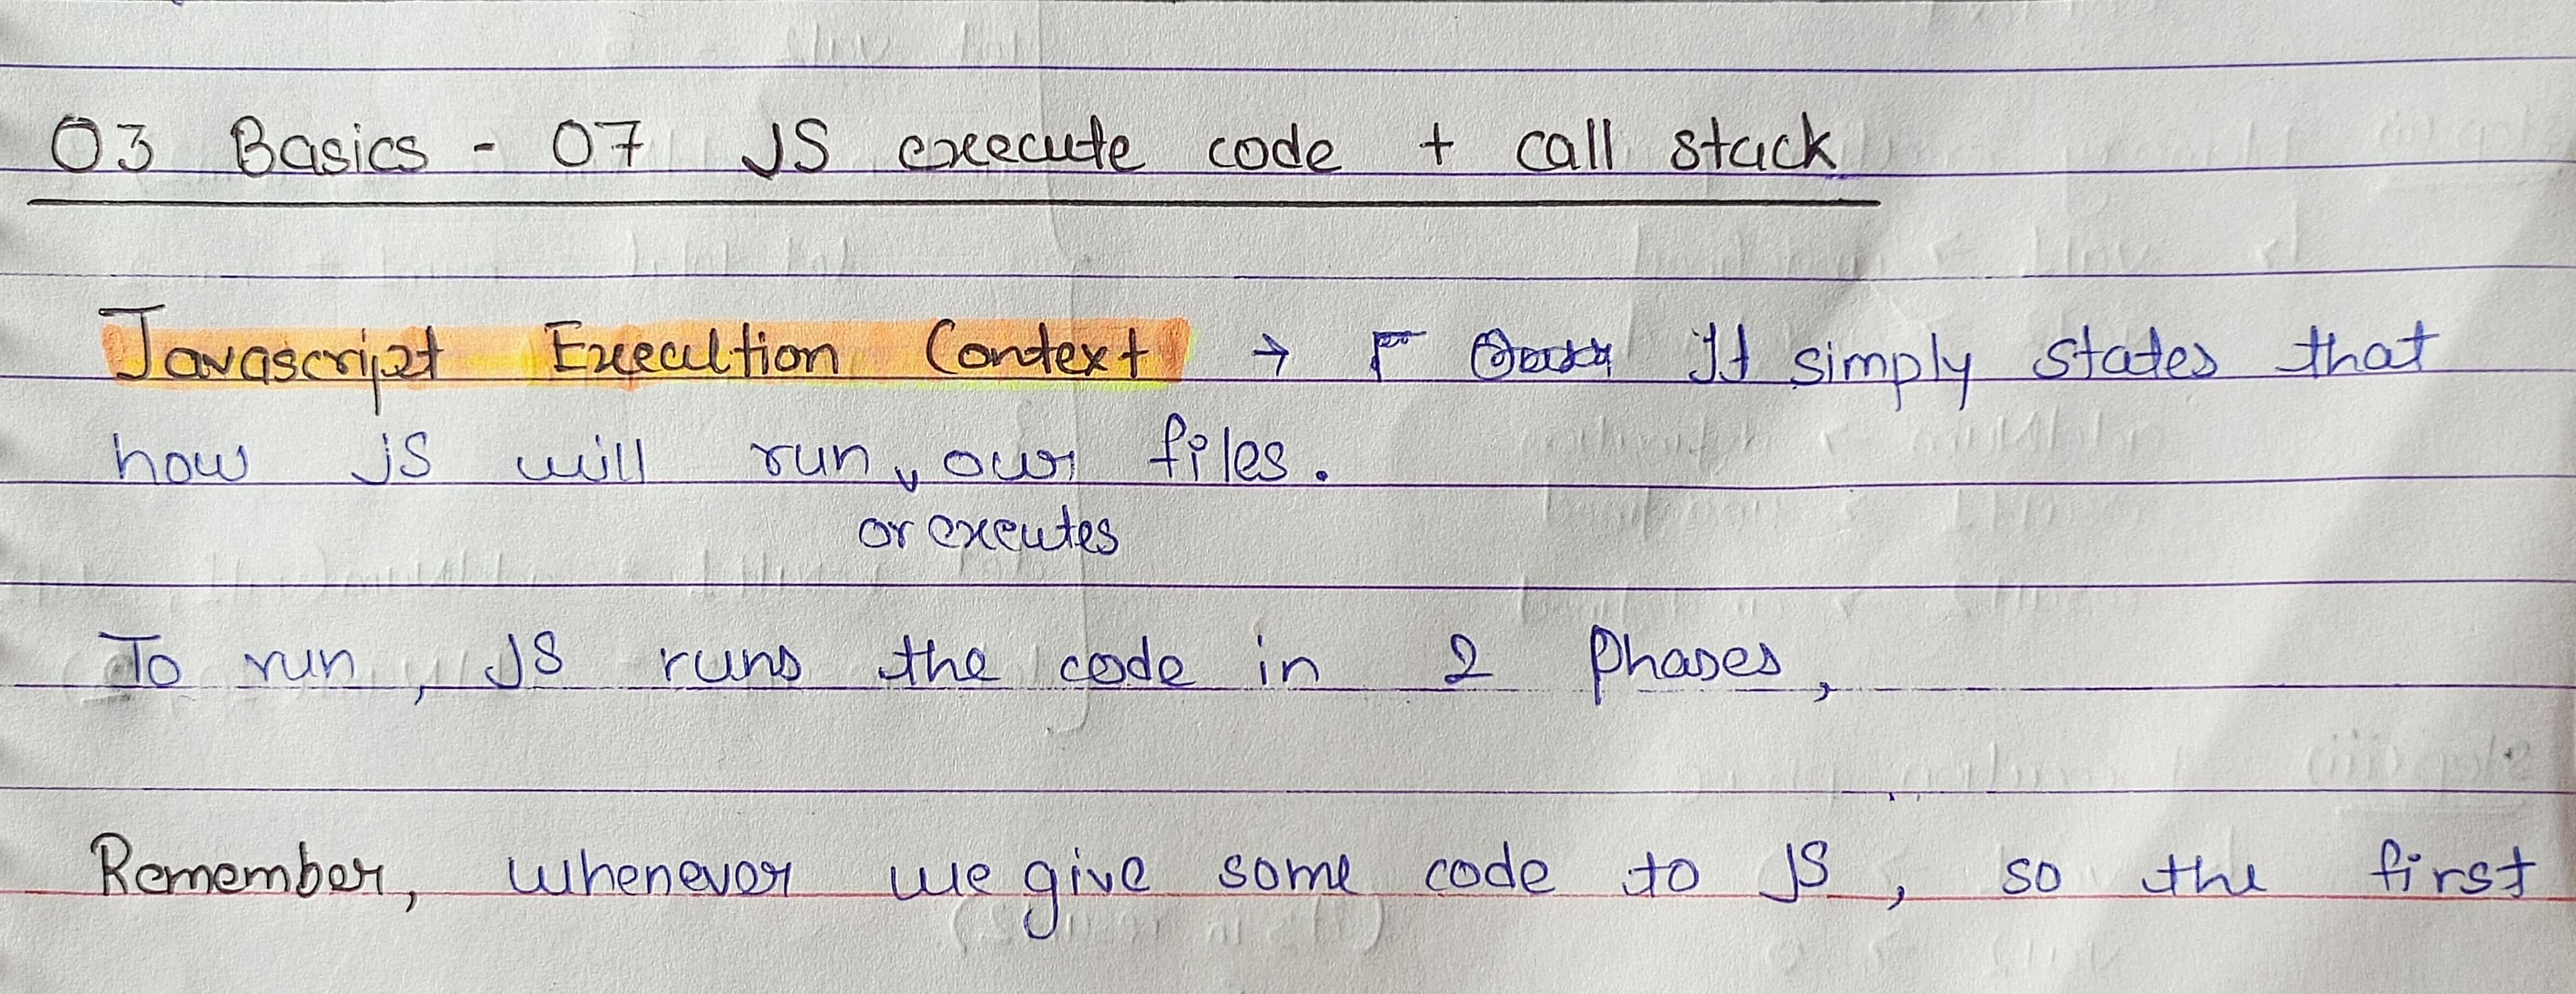 03 Basics - 07 JS execute code + call stack
Javascript Execultion Context → It simply states that
how JS will run our files.
or executes
To run, JS runs the code in 2 Phases,
Remember, whenever we give some code to JS, so the first